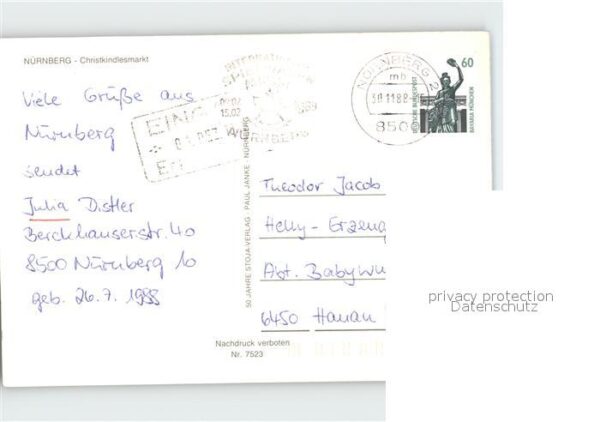 NÜRNBERG - Christkindlesmarkt
Viele Grüße aus
Nürnberg
sendet
Julia Distler
Berckhauserstr. 40
8500 Nürnberg 10
geb. 26.7.1988
EING
NÜRNBERG
NÜRNBERG 2
mb
850
60
DEUTSCHE BUNDESPOST
BAVARIA MÜNCHEN
50 JAHRE STOJA-VERLAG - PAUL JANKE · NÜRNBERG
Theodor Jacob
Abt. Babywu
6450 Hanau
Nachdruck verboten
Nr. 7523
privacy protection
Datenschutz